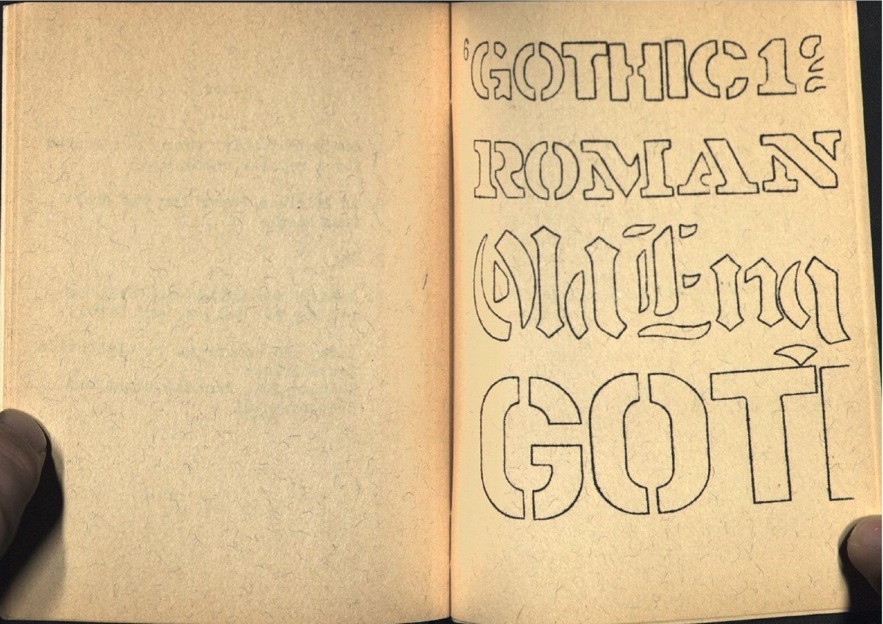 6 GOTHIC 12
ROMAN
Old Eng
GOT